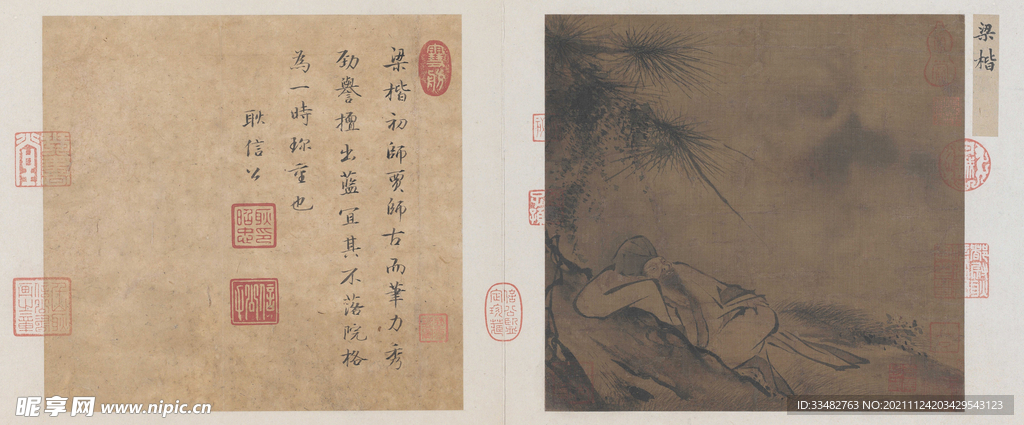 梁楷初師賈師古而筆力秀
勁譽擅出藍宜其不落院格
為一時珍重也
耿信公
梁楷
昵享网 www.nipic.cn
ID:33482763 NO:20211124203429543123